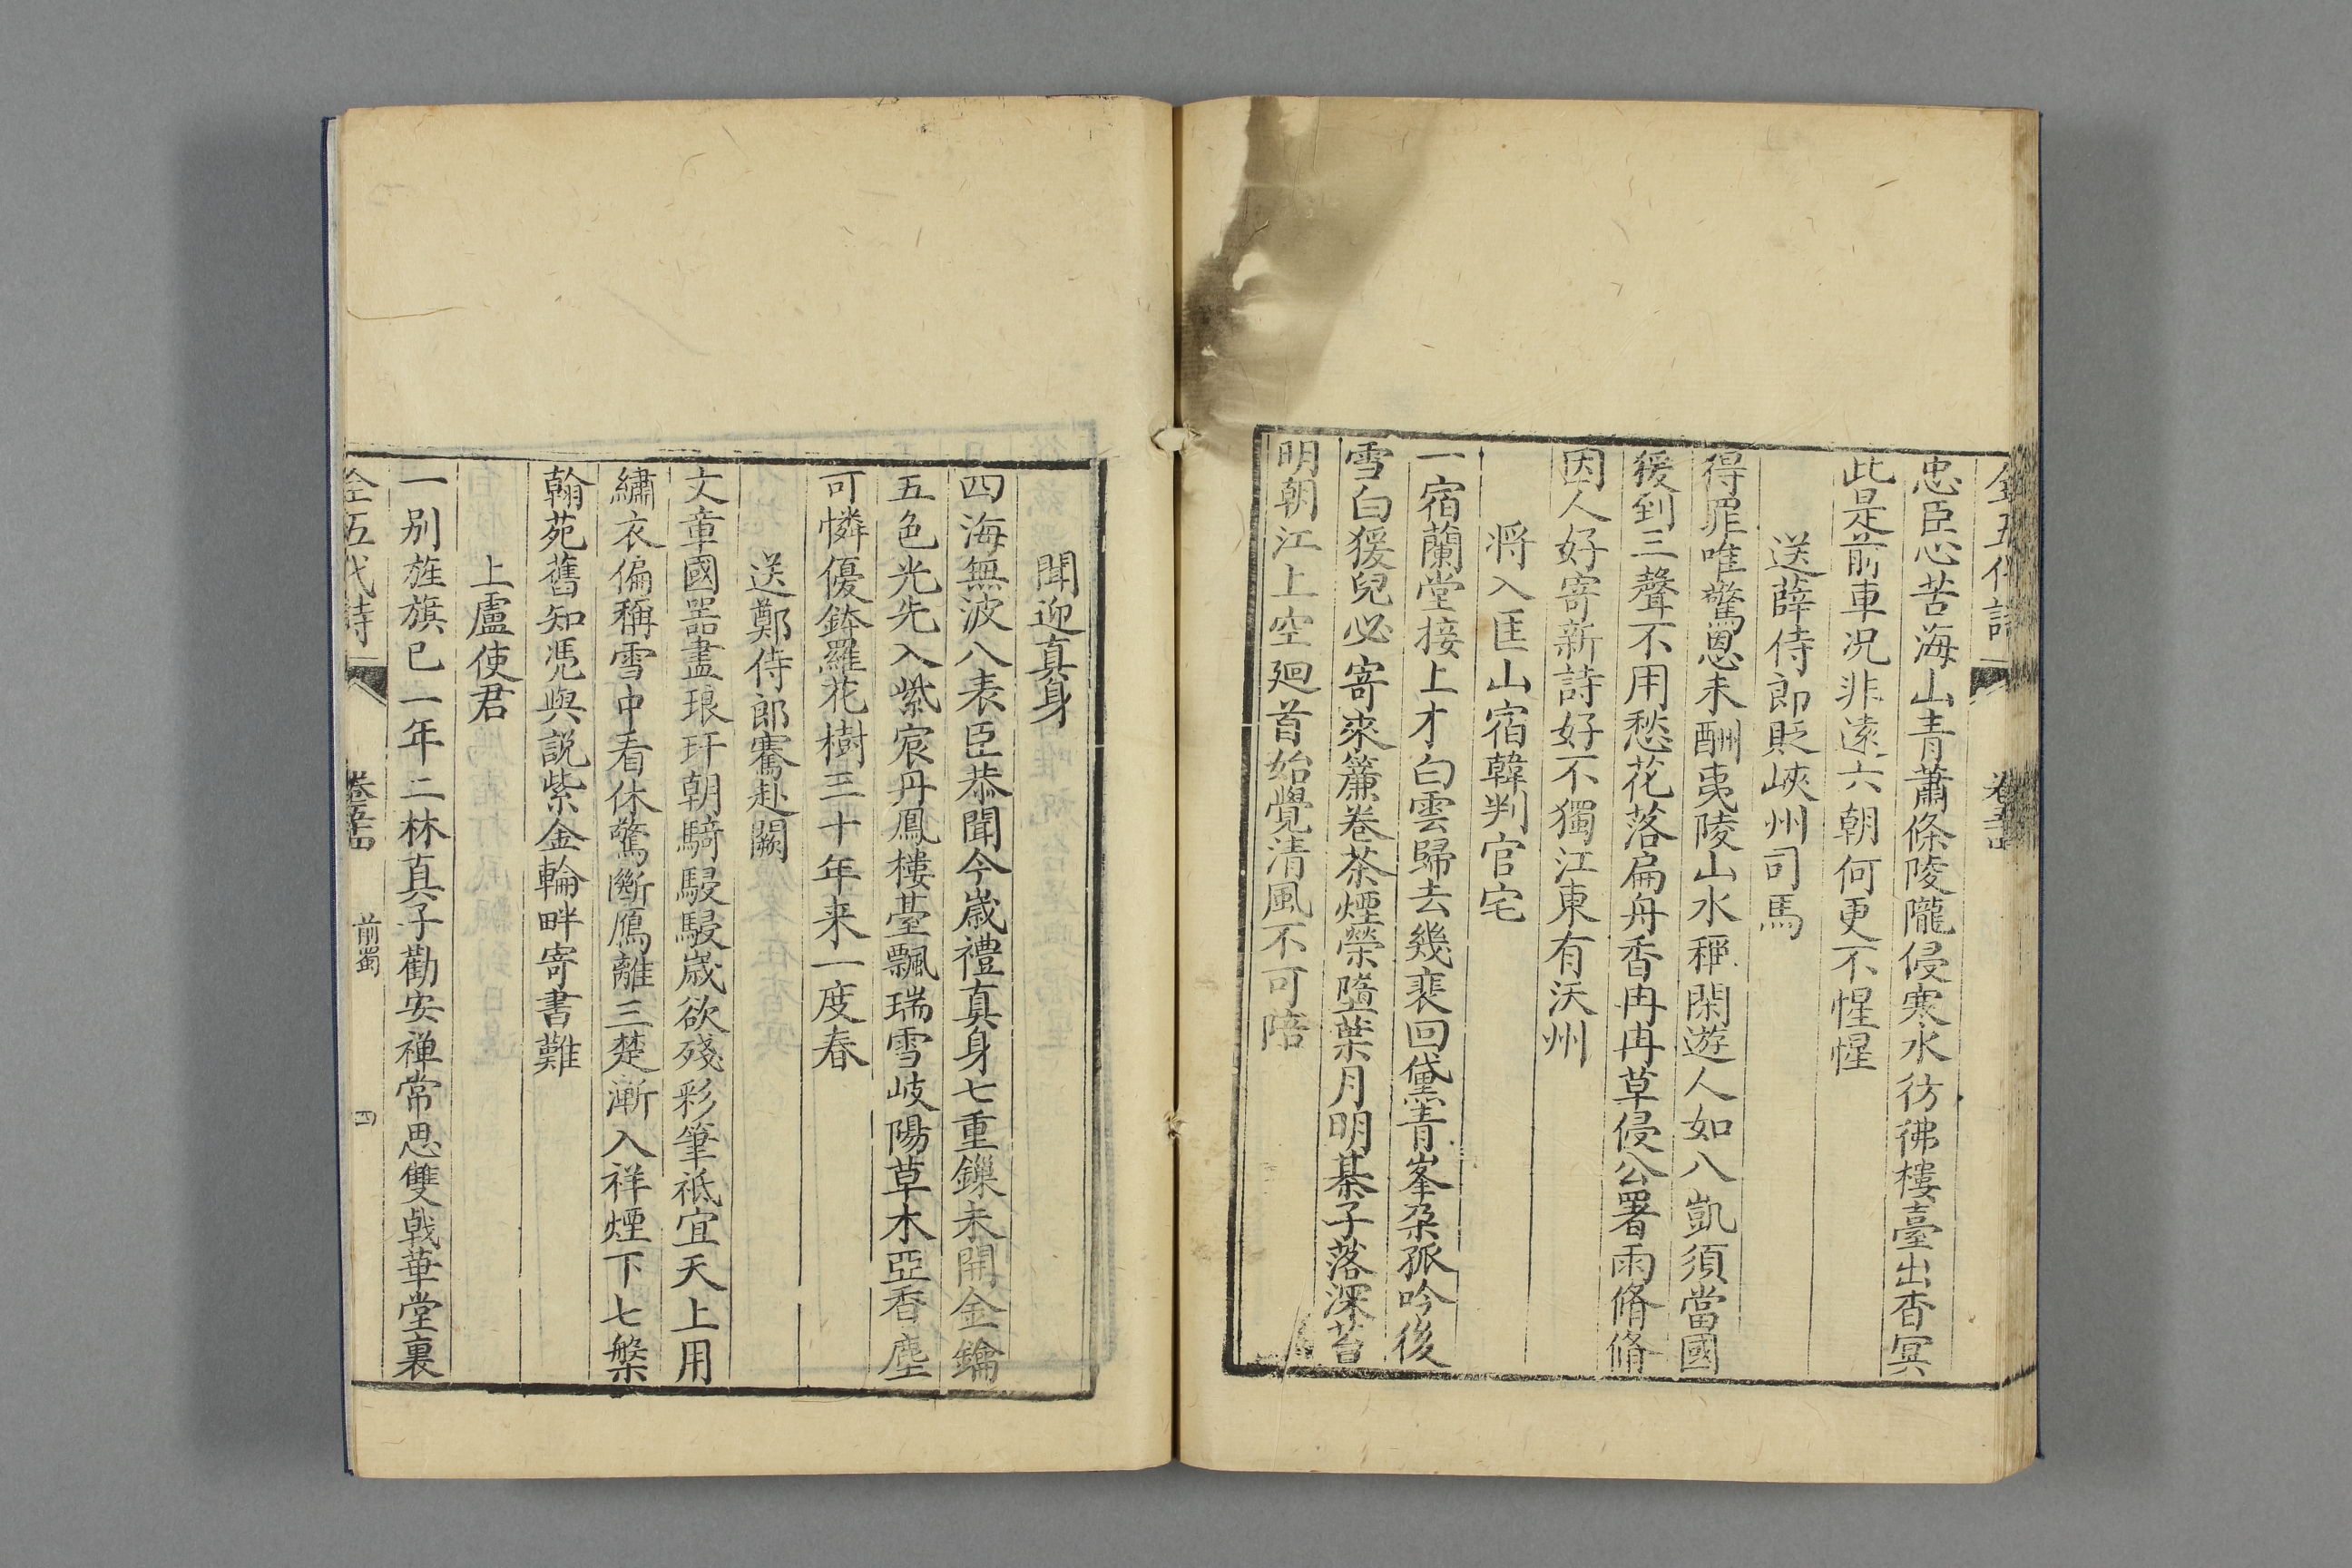 全五代詩
忠臣心苦海山青蕭條陵隴侵寒水彷彿樓臺出杳冥
此是前車況非遠六朝何更不惺惺
送薛侍郎貶峽州司馬
得罪唯驚恩未酬夷陵山水稱閑遊人如八凱須當國
猨到三聲不用愁花落扁舟香冉冉草侵公署雨脩脩
因人好寄新詩好不獨江東有沃州
將入匡山宿韓判官宅
一宿蘭堂接上才白雲歸去幾裴回黛青峯朶孤吟後
雪白猨兒必寄來簾卷茶煙縈墮葉月明棊子落深苔
明朝江上空廻首始覺清風不可陪
聞迎真身
四海無波八表臣恭聞今歲禮真身七重鏁未開金鑰
五色光先入紫宸丹鳳樓臺飄瑞雪岐陽草木亞香塵
可憐優鉢羅花樹三十年来一度春
送鄭侍郎騫赴闕
文章國器盡琅玕朝騎駸駸歲欲殘彩筆祗宜天上用
繡衣偏稱雪中看休驚斷鴈離三楚漸入祥煙下七槃
翰苑舊知憑與說紫金輪畔寄書難
上盧使君
一别旌旗已一年二林真子勸安禅常思雙戟華堂裏
全五代詩 前蜀 四